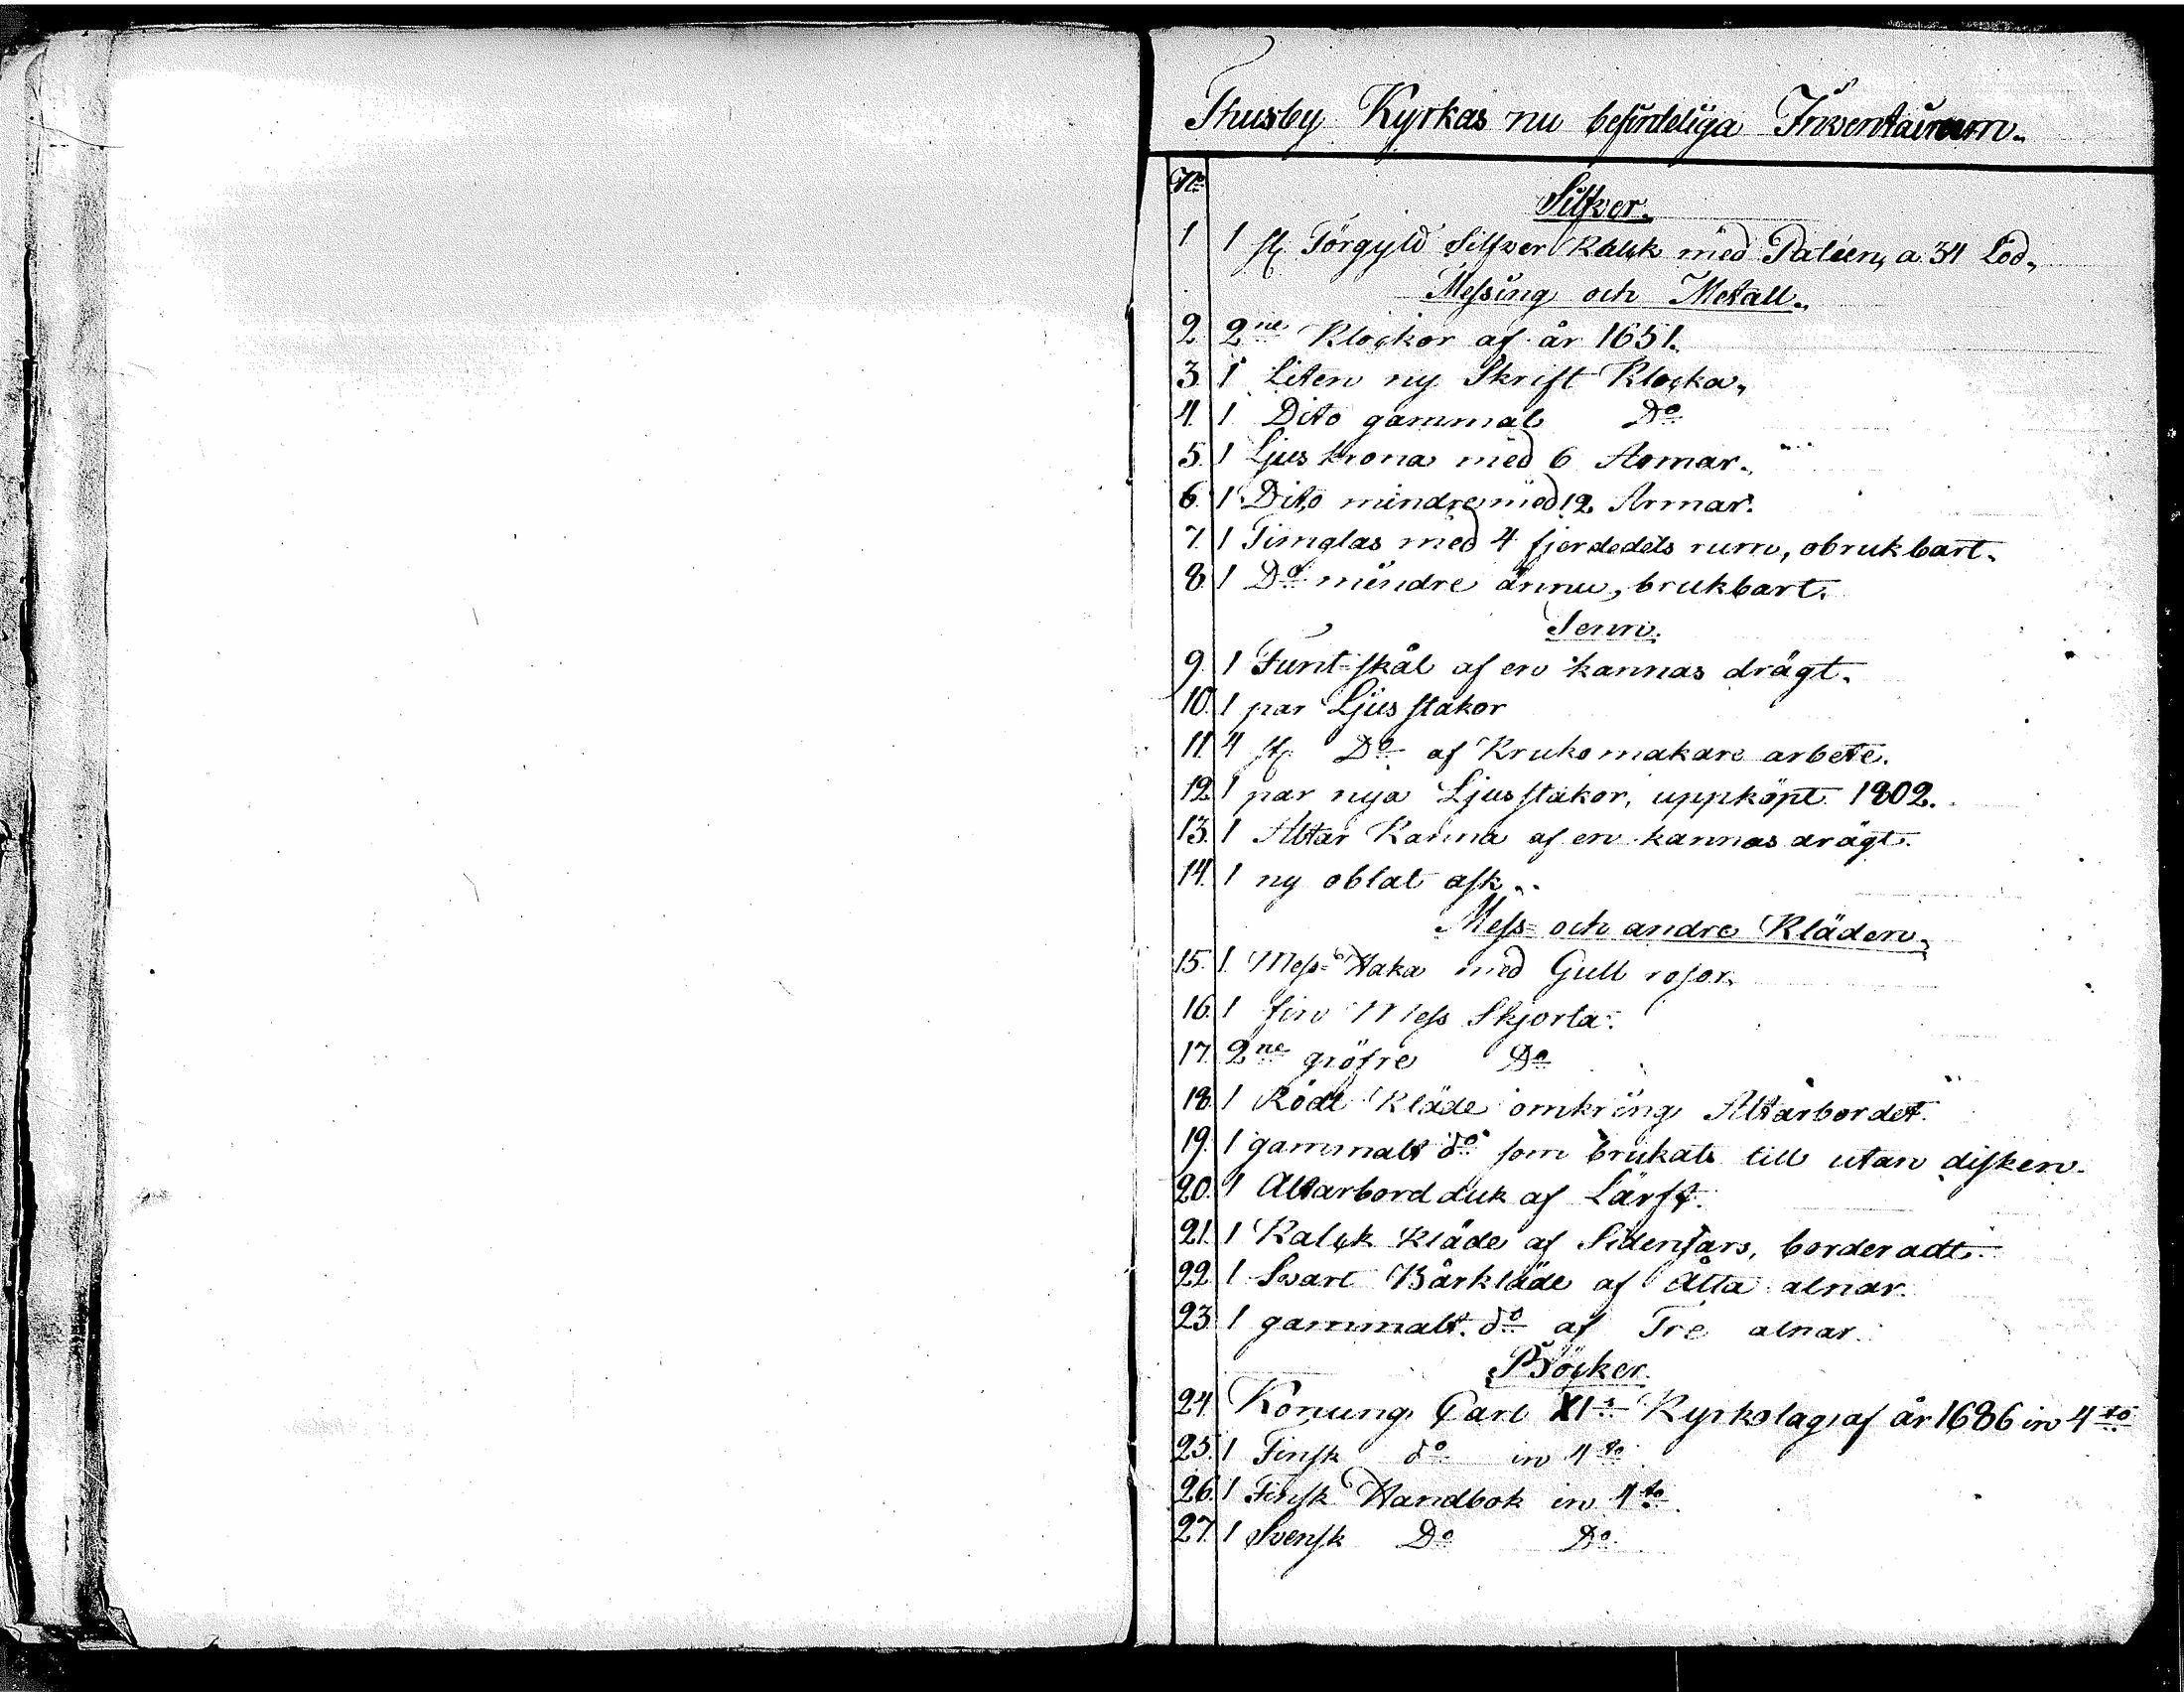 Thusby Kyrkas nu befinteliga Inventarium.
No
Silfver.
1 1 st. Förgyld Silfver Kalck med Patéen, a 34 Lod,
Messing och Metall.
2 2ne Klockor af år 1651.
3. 1 Liten ny Skrift Klocka,
4. 1 Dito gammal Do
5. 1 Ljus krona med 6 Armar.
6. 1 Dito mindre med 12 Armar.
7. 1 Timglas med 4 fjerdedels rum, obrukbart.
8. 1 Do mindre ännu, brukbart.
Tenn.
9. 1 Funt-skål af en kannas drägt.
10. 1 par Ljusstakor
11. 4 st. Do af Krukomakare arbete.
12. 1 par nya Ljusstakor, uppköpt 1802.
13. 1 Altar Kanna af en kannas drägt.
14. 1 ny oblat ask.
Mess= och andre Kläden,
15. 1. Mess=Haka med Gull rosor.
16. 1 fin Mess Skjorta.
17. 2ne gröfre Do
18. 1 Rödt Kläde omkring Altarbordet.
19. 1 gammalt do som brukats till utan disken.
20. 1 Altarbord duk af Lärft.
21. 1 Kalck Kläde af Sidensars, borderadt.
22. 1 Svart Bårkläde af Åtta alnar.
23. 1 gammalt do af Tre alnar.
Böcker.
24. Konung Carl XIs Kyrkolag af år 1686 in 4to
25. 1 Finsk do in 4to
26. 1 Finsk Handbok in 4to.
27. 1 Svensk Do Do.